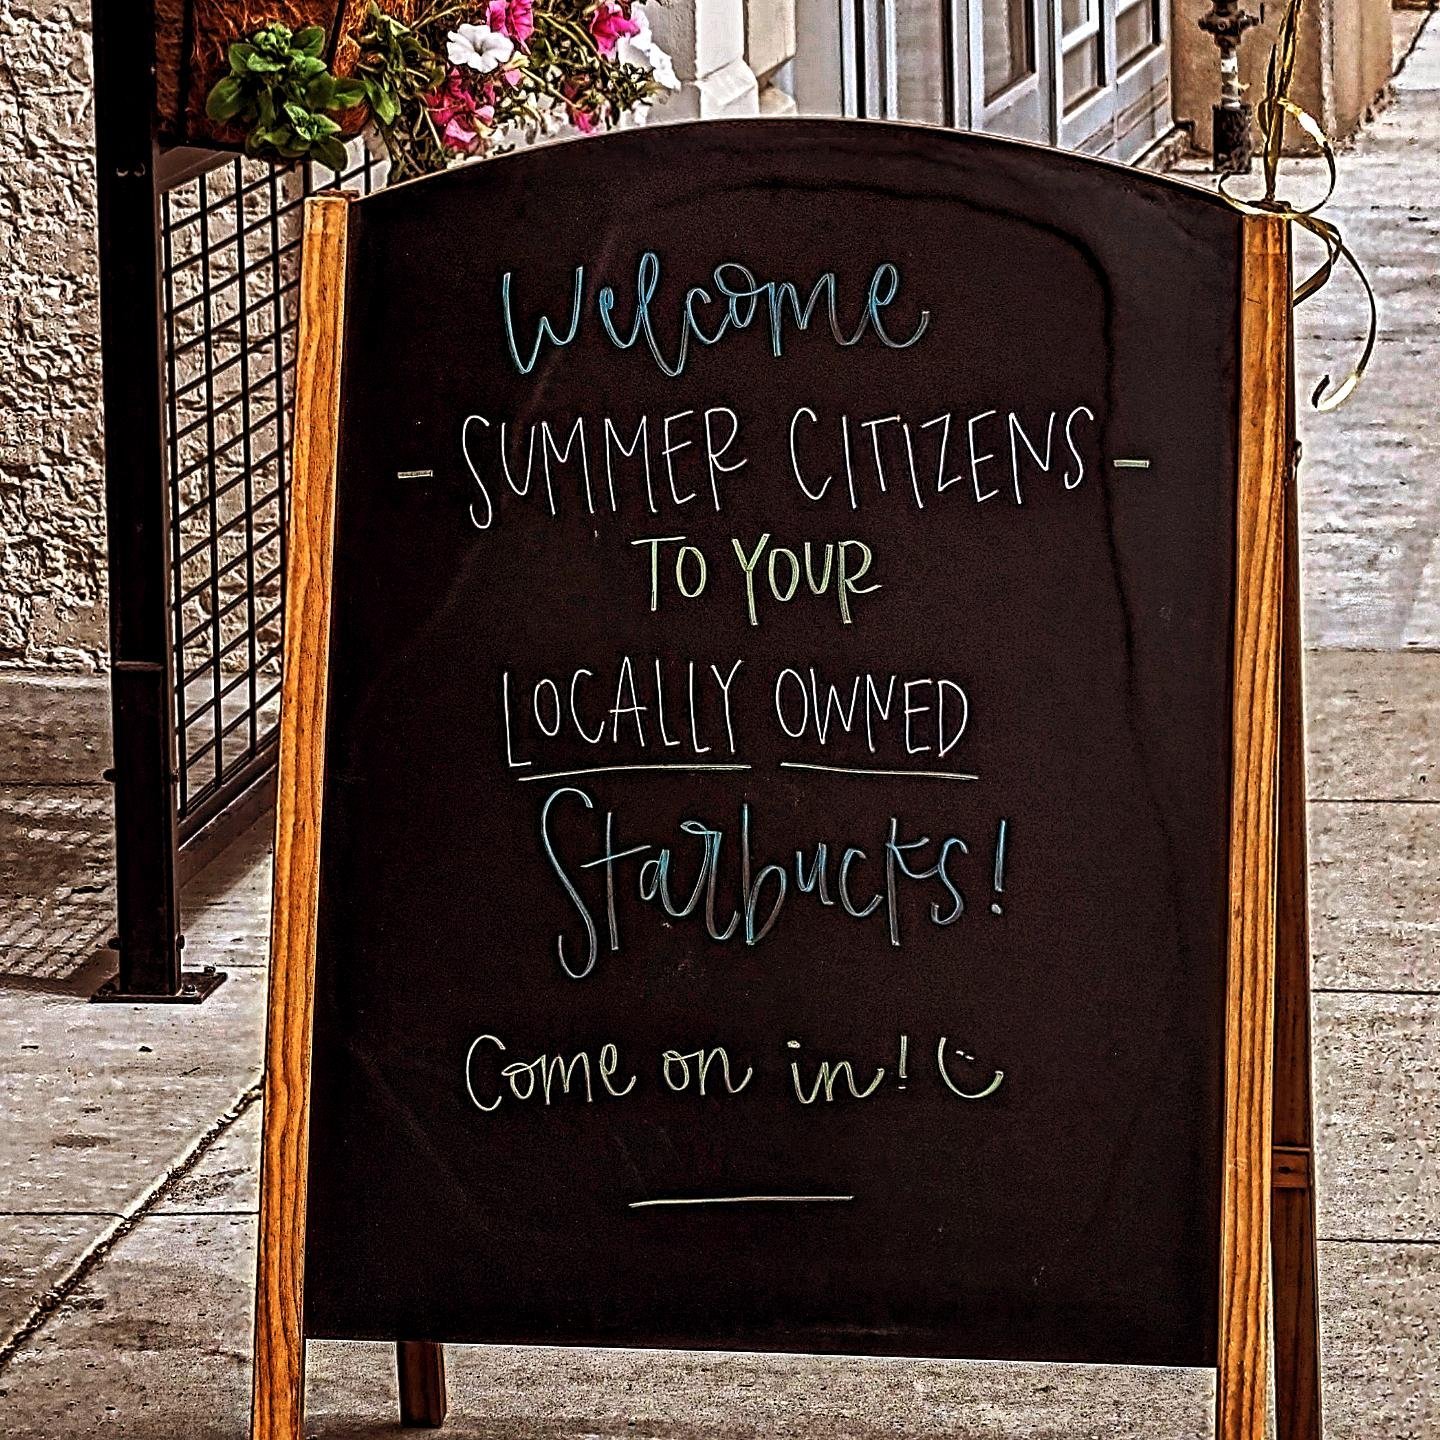 Welcome
- SUMMER CITIZENS -
TO YOUR
LOCALLY OWNED
Starbucks!
Come on in! :)